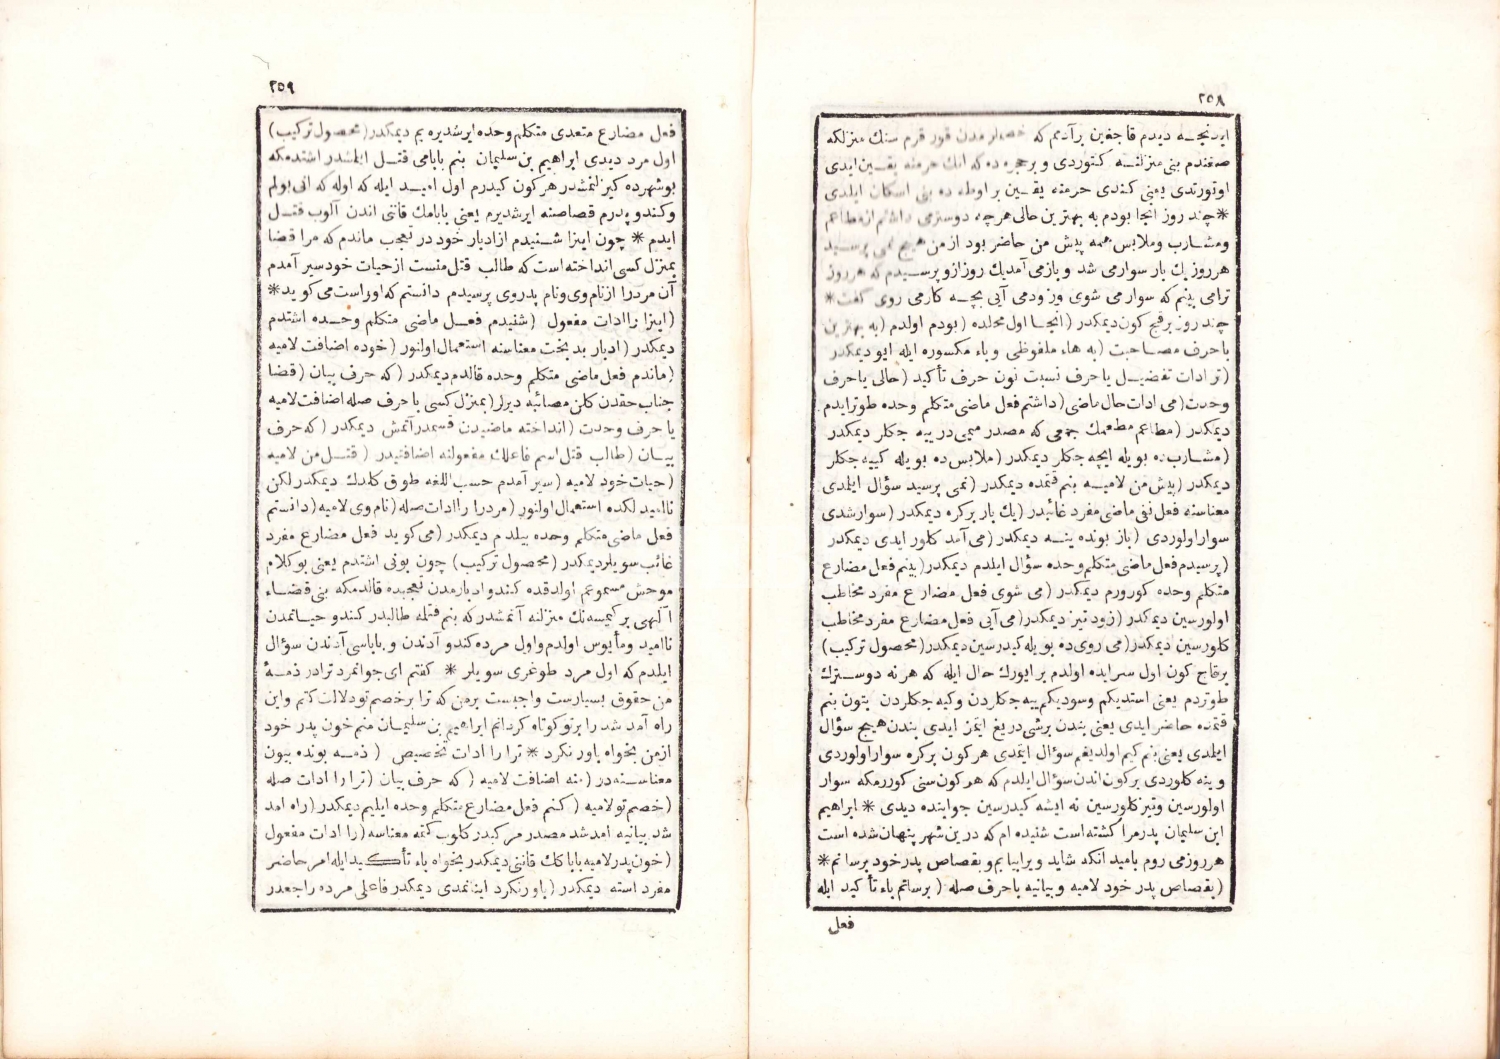 ٢٥٨
ايدنجه ديدم قاجغين برآدمم كه خصملرمدن قورقرم سنك منزلكه
صغندم بنى منزلنه كتوردى وبرحجره ده كه انك حرمنه يقين ايدى
اوتورتدى يعنى كندى حرمنه يقين براوطه ده بنى اسكان ايلدى
* چند روز انجا بودم به بهترين حالى هرچه دوسترمى داشتم ازمطاعم
ومشارب وملابس همه پيش من حاضر بود ازمن هيچ نمى پرسيد
هرروز يك بار سوارمى شد وبازمى آمديك روزازو پرسيدم كه هرروز
ترامى بينم كه سوار مى شوى وزودمى آيى بچه كارمى روى كفت *
چند روز برقچ كون ديمكدر (انجا اول محلده (بودم اولدم (به بهترين
باحرف مصاحبت (به هاء ملفوظى وباء مكسوره ايله ايو ديمكدر
(تر ادات تفضيل ياحرف نسبت نون حرف تأكيد (حالى ياحرف
وحدت (مى ادات حال ماضى (داشتم فعل ماضى متكلم وحده طوترايدم
ديمكدر (مطاعم مطعمك جمعى كه مصدر ميمى در ييه جكلر ديمكدر
(مشارب ده بويله ايچه جكلر ديمكدر (ملابس ده بويله كييه جكلر
ديمكدر (پيش من لاميه بنم قتمده ديمكدر (نمى پرسيد سؤال ايلمدى
معناسنه فعل نفى ماضى مفرد غائبدر (يك بار بركره ديمكدر (سوارشدى
سوار اولوردى (باز بونده ينه ديمكدر (مى آمد كلور ايدى ديمكدر
(پرسيدم فعل ماضى متكلم وحده سؤال ايلدم ديمكدر (بينم فعل مضارع
متكلم وحده كورورم ديمكدر (مى شوى فعل مضارع مفرد مخاطب
اولورسين ديمكدر (زود تيز ديمكدر (مى آيى فعل مضارع مفرد مخاطب
كلورسين ديمكدر (مى روى ده بويله كيدرسين ديمكدر (محصول تركيب)
برقاچ كون اول سرايده اولدم برايورك حال ايله كه هرنه دوسترك
طوتردم يعنى استديكم وسوديكم ييه جكلردن وكيه جكلردن بتون بنم
قتمده حاضر ايدى يعنى بندن برشى دريغ ايتمز ايدى بندن هيچ سؤال
ايلمدى يعنى بنم كيم اولديغم سؤال ايتمدى هركون بركره سوار اولوردى
وينه كلوردى بركون اندن سؤال ايلدم كه هركون سنى كوررمكه سوار
اولورسين وتيز كلورسين نه ايشه كيدرسين جوابنده ديدى * ابراهيم
ابن سليمان پدرمرا كشته است شنيده ام كه درين شهر پنهان شده است
هرروزمى روم باميد آنكه شايد ويرابيابم وبقصاص پدرخود برسانم *
(بقصاص پدر خود لاميه وبيانيه باحرف صله (برسانم باء تأكيد ايله
فعل
٢٥٩
فعل مضارع متعدى متكلم وحده ايرشديره يم ديمكدر (محصول تركيب)
اول مرد ديدى ابراهيم بن سليمان بنم بابامى قتل ايلمشدر اشتدمكه
بوشهرده كيزلنمشدر هركون كيدرم اول اميد ايله كه اوله كه انى بولم
وكندو پدرم قصاصنه ايرشديرم يعنى بابامك قاننى اندن آلوب قتل
ايدم * چون اينرا شنيدم ازادبار خود در تعجب ماندم كه مرا قضا
بمنزل كسى انداخته است كه طالب قتل منست ازحيات خودسير آمدم
آن مردرا ازنام وى ونام پدروى پرسيدم دانستم كه اوراست مى كويد *
(اينرا را ادات مفعول (شنيدم فعل ماضى متكلم وحده اشتدم
ديمكدر (ادبار بدبخت معناسنه استعمال اولنور (خوده اضافت لاميه
(ماندم فعل ماضى متكلم وحده قالدم ديمكدر (كه حرف بيان (قضا
جناب حقدن كلن مصائبه ديرلر (بمنزل كسى باحرف صله اضافت لاميه
ياحرف وحدت (انداخته ماضيدن قسمدر آتمش ديمكدر (كه حرف
بيان (طالب قتل اسم فاعلك مفعولنه اضافتيدر (قتل من لاميه
(حيات خود لاميه (سير آمدم حسب اللغه طوق كلدك ديمكدر لكن
نااميد لكده استعمال اولنور (مردرا را ادات صله (نام وى لاميه (دانستم
فعل ماضى متكلم وحده بيلدم ديمكدر (مى كويد فعل مضارع مفرد
غائب سويلر ديمكدر (محصول تركيب) چون بونى اشتدم يعنى بوكلام
موحش مسموعم اولدقده كندو ادبارمدن تعجبده قالدمكه بنى قضاء
آلهى بركيمسه نك منزلنه آتمشدر كه بنم قتلمه طالبدر كندو حياتمدن
نااميد ومأيوس اولدم واول مرده كندو آدندن وباباسى آدندن سؤال
ايلدم كه اول مرد طوغرى سويلر * كفتم اى جوانمرد ترادر ذمهٔ
من حقوق بسيارست واجبست برمن كه ترا برخصم تو دلالت كنم واين
راه آمد شد را برتو كوتاه كردانم ابراهيم بن سليمان منم خون پدر خود
ازمن بخواه باور نكرد * ترا را ادات تخصيص (ذمه بونده بيون
معناسنه در (منه اضافت لاميه (كه حرف بيان (ترا را ادات صله
(خصم تو لاميه (كنم فعل مضارع متكلم وحده ايليم ديمكدر (راه آمد
شد بيانيه آمد شد مصدر مركبدر كلوب كتمه معناسنه (را ادات مفعول
(خون پدر لاميه باباكك قاننى ديمكدر بخواه باء تأكيد ايله امر حاضر
مفرد استه ديمكدر (باور نكرد اينانمدى ديمكدر فاعلى مرده راجعدر